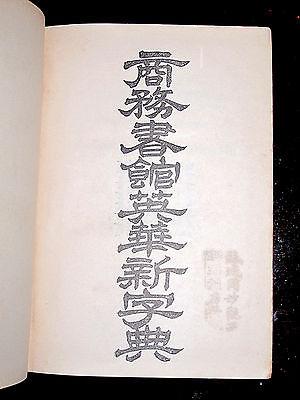 商務書館英華新字典